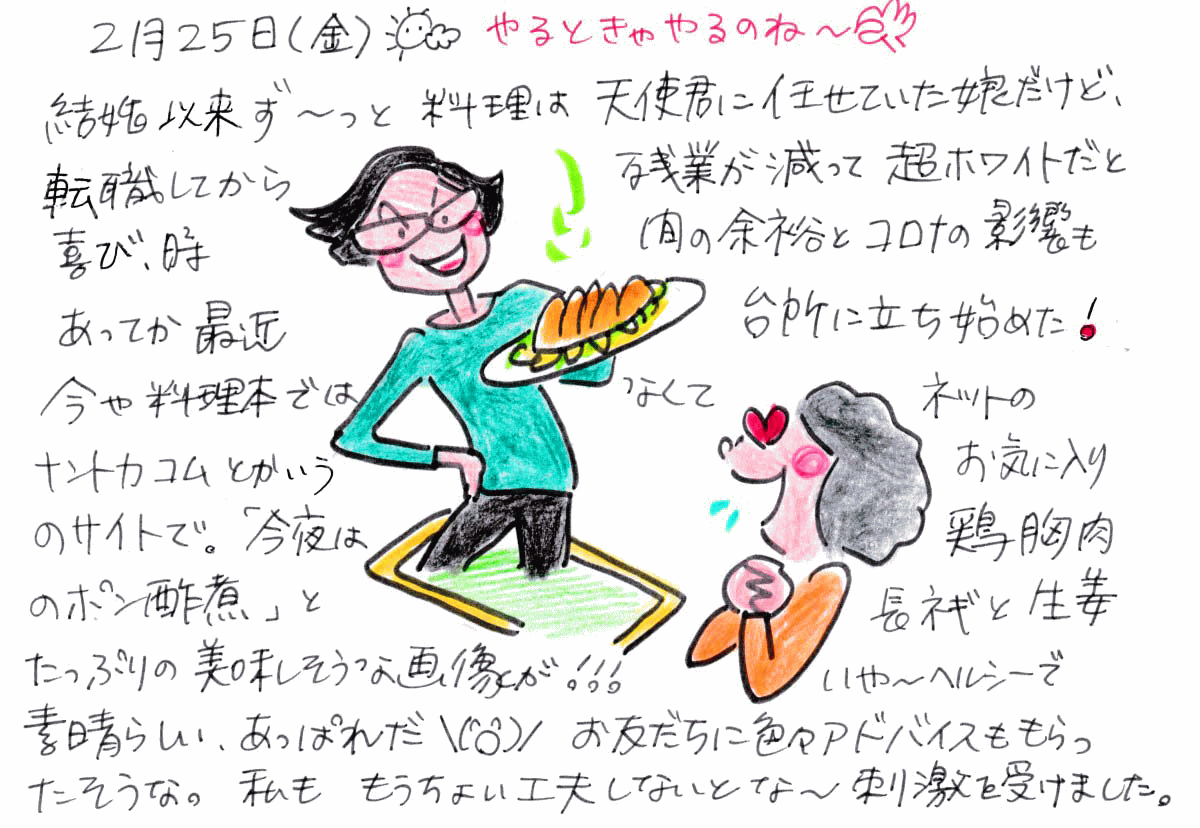 2月25日(金) やるときゃやるのね〜
結婚以来ず〜っと 料理は 天使君に任せていた娘だけど、
転職してから 残業が減って 超ホワイトだと
喜び、時間の余裕とコロナの影響も
あってか 最近 台所に立ち始めた!
今や料理本ではなくて ネットの
ナントカコムとかいう お気に入り
のサイトで。「今夜は 鶏胸肉
のポン酢煮」と 長ネギと生姜
たっぷりの美味しそうな画像が!!! いや〜ヘルシーで
素晴らしい、あっぱれだ\(^o^)/ お友だちに色々アドバイスももらっ
たそうな。 私も もうちょい工夫しないとな〜 刺激を受けました。